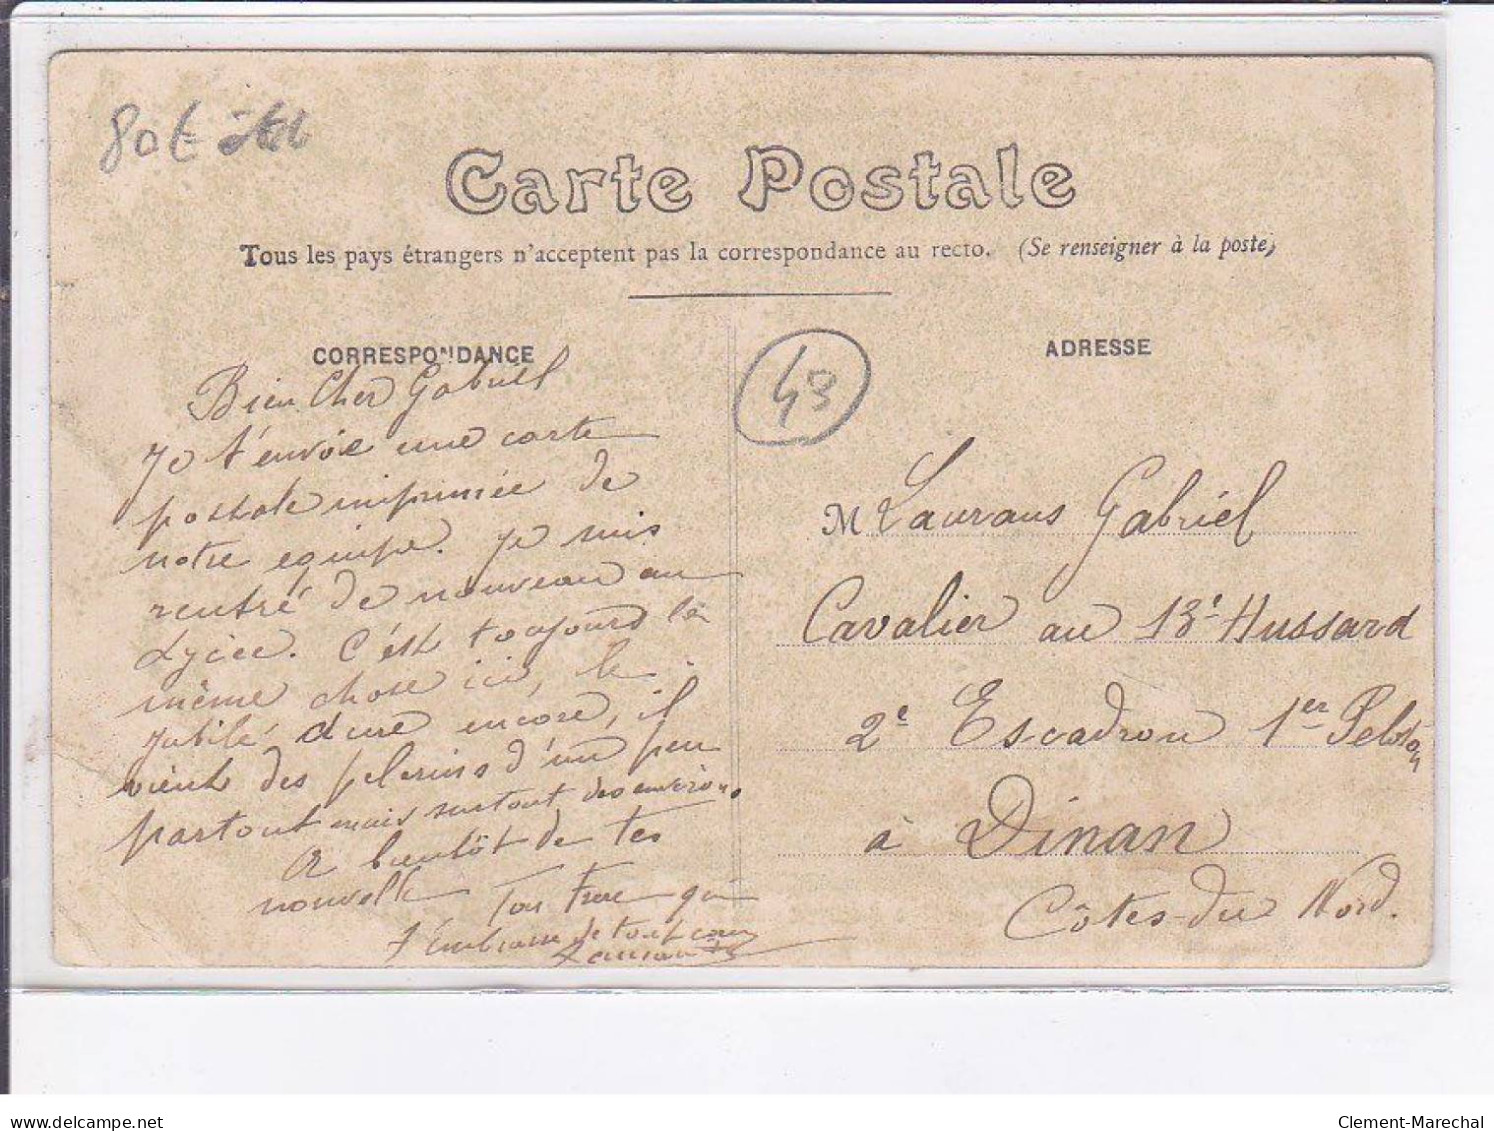 80€
Carte Postale
Tous les pays étrangers n'acceptent pas la correspondance au recto. (Se renseigner à la poste)
CORRESPONDANCE
Bien Cher Gabriel
Je t'envoie une carte
postale imprimée de
notre equipe. Je suis
rentré de nouveau au
Lycée. C'est toujours la
même chose ici, le
jubilé dure encore, il
vient des pelerins d'un peu
partout mais surtout des environs
A bientôt de tes
nouvelle Ton Frere qui
t'embrasse de tout cœur
Laurans
43
ADRESSE
M Laurans Gabriel
Cavalier au 13e Hussard
2e Escadron 1er Peloton
à Dinan
Côtes-du Nord.
delcampe.net
Clement-Marechal